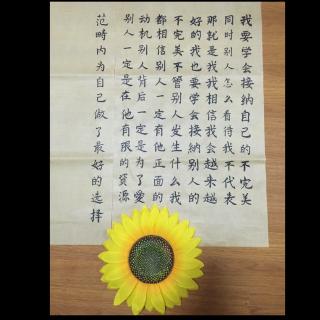 我要学会接纳自己的不完美
同时别人怎么看待我不代表
那就是我我相信我会越来越
好的我也要学会接納别人的
不完美不管别人发生什么我
都相信别人一定有他正面的
动机别人背后一定是为了爱
别人一定是在他有限的資源
范時内为自己做了最好的选择